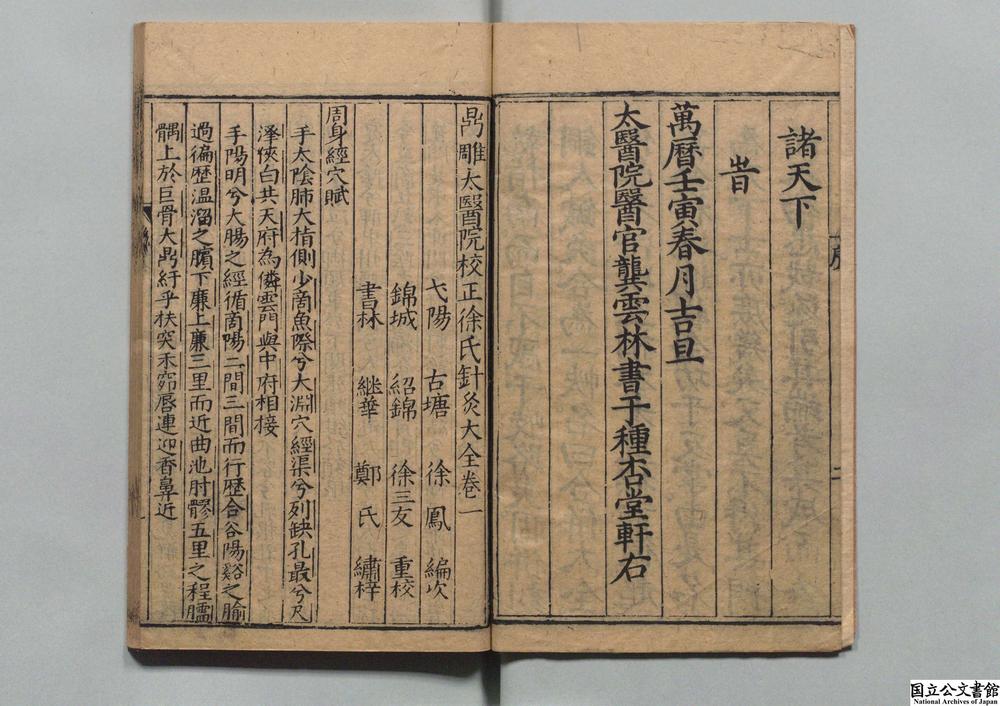 諸天下
旹
萬曆壬寅春月吉旦
太醫院醫官龔雲林書于種杏堂軒右
序
二
鼎雕太醫院校正徐氏針灸大全卷一
弋陽 古塘 徐鳳 編次
錦城 紹錦 徐三友 重校
書林 継華 鄭氏 繡梓
周身經穴賦
手太陰肺大指側少商魚際兮大淵穴經渠兮列缺孔最兮尺
澤俠白共天府為憐雲門與中府相接
手陽明兮大腸之經循商陽二間三間而行歷合谷陽谿之腧
過徧歷温溜之臏下廉上廉三里而近曲池肘髎五里之程臑
髃上於巨骨大鼎紆乎扶突禾窌唇連迎香鼻近
国立公文書館
National Archives of Japan